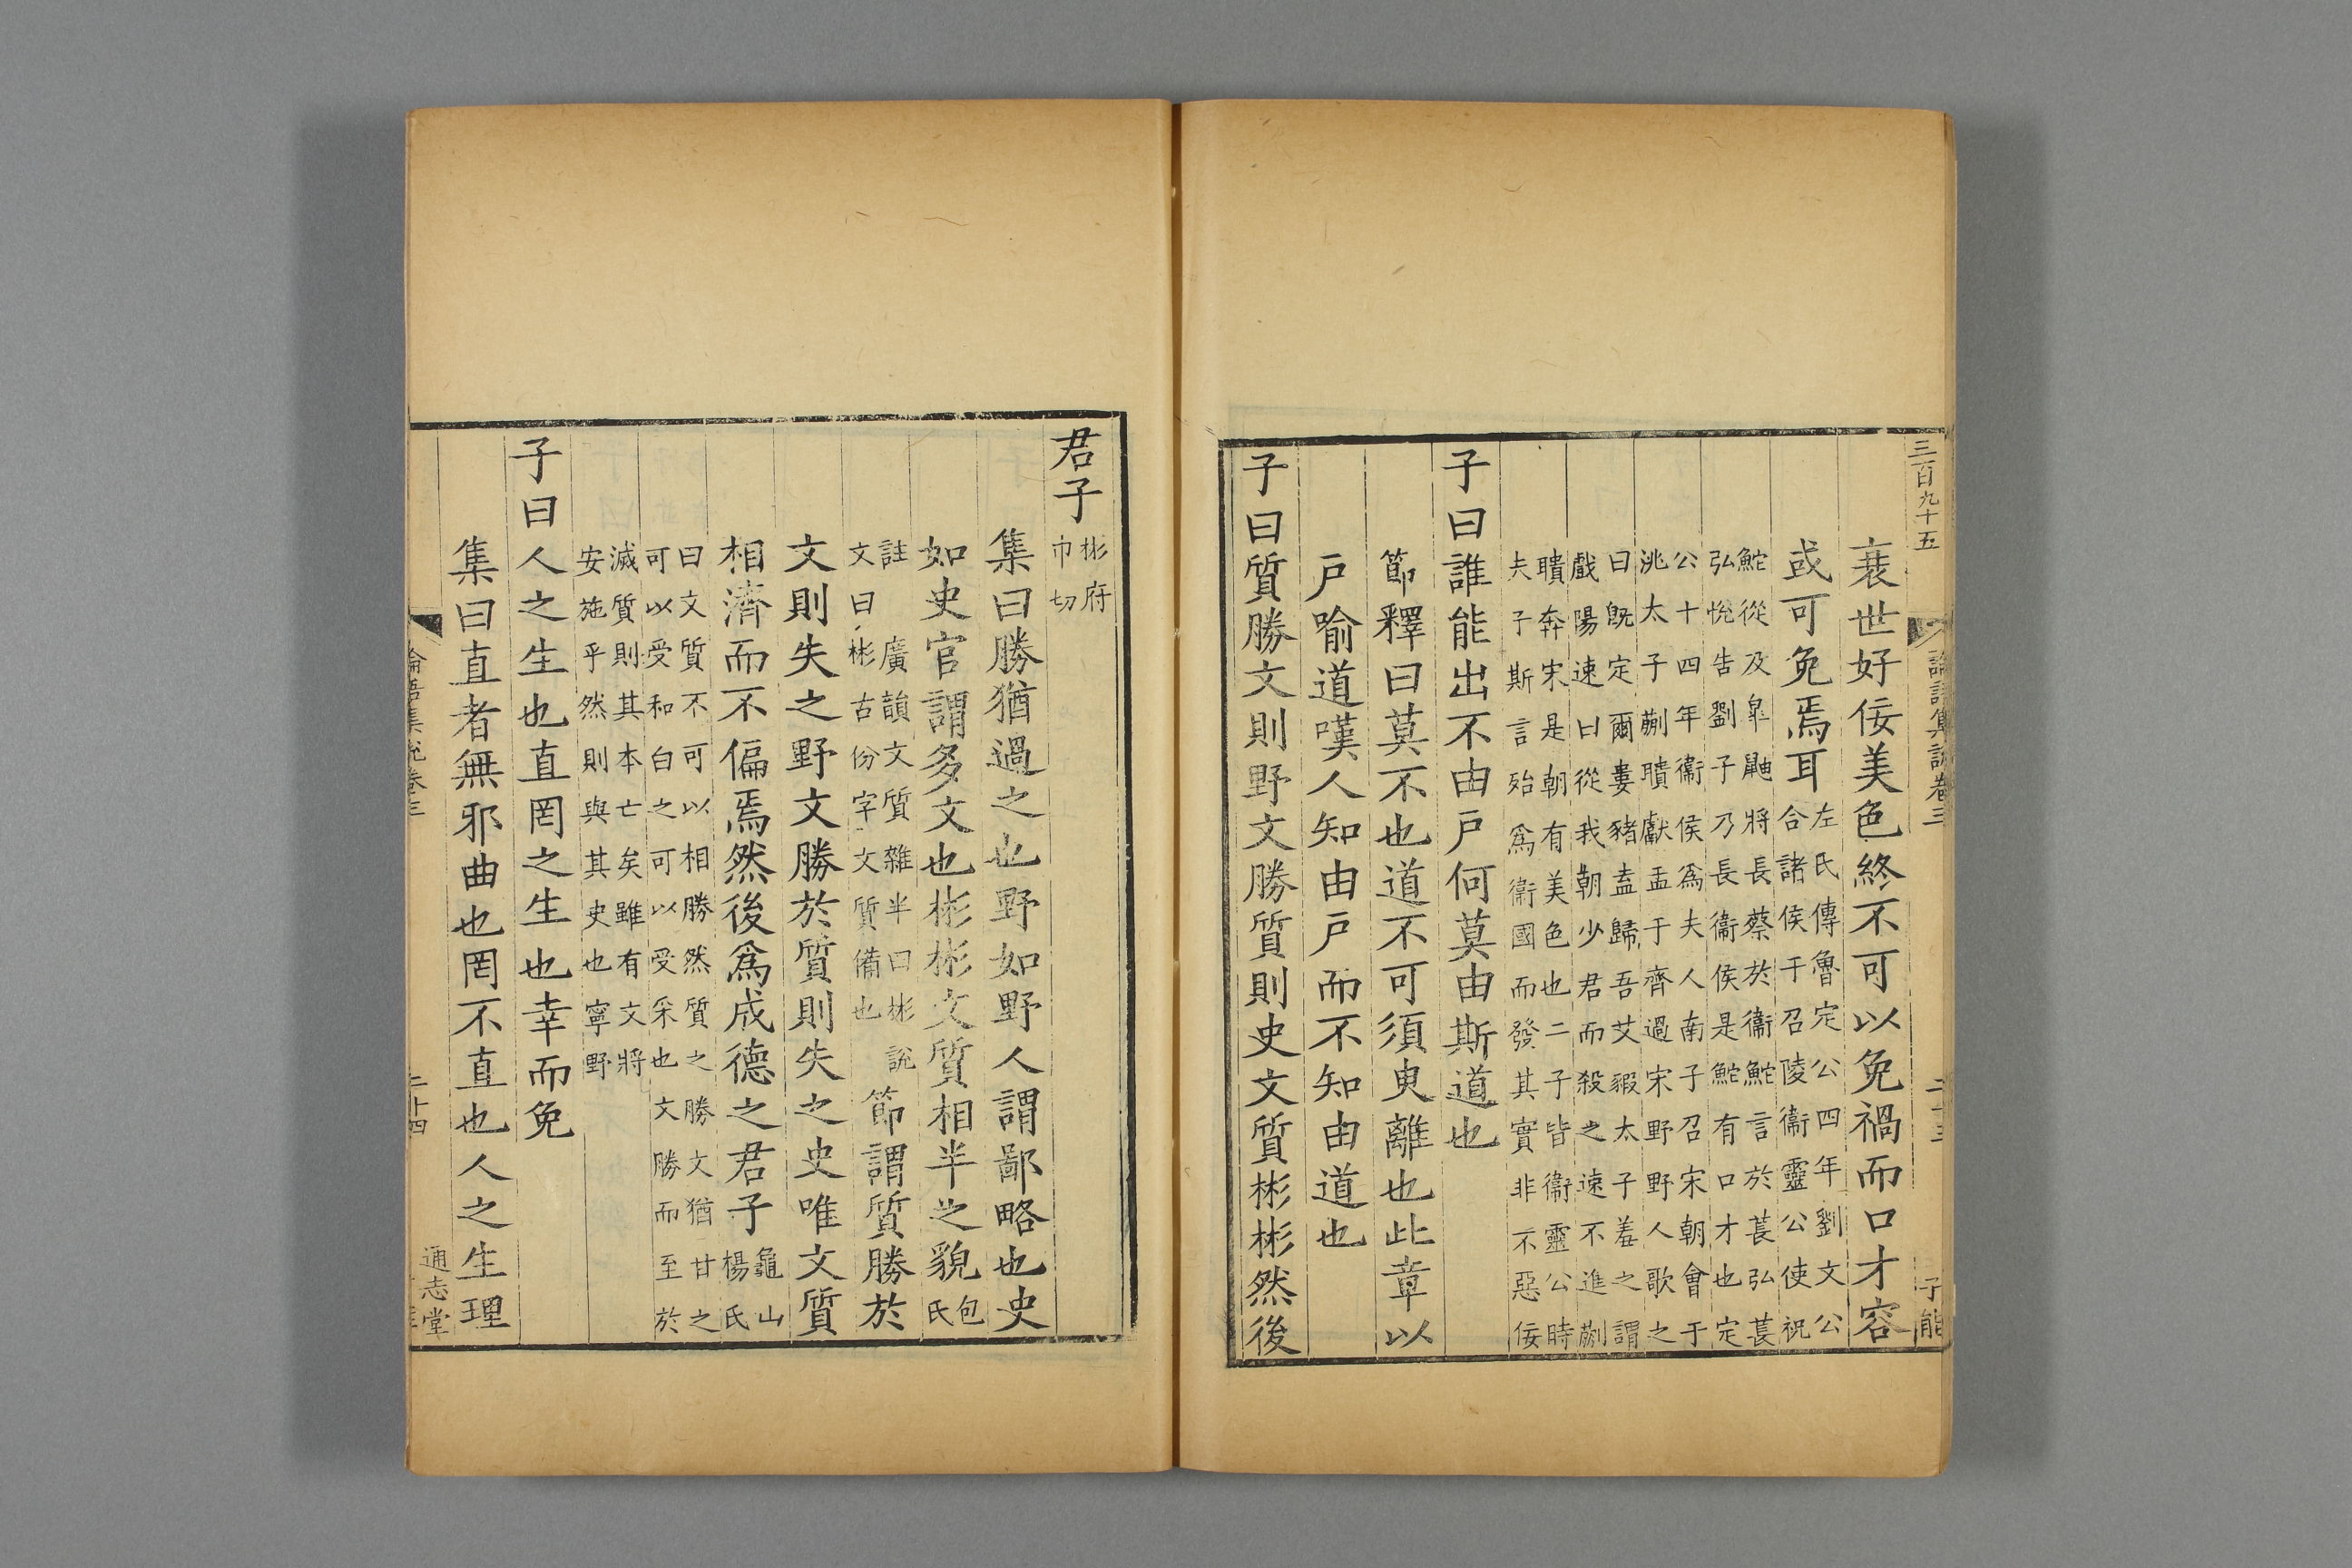 三百九十五
論語集說卷三
二十三
子能
衰世好佞美色終不可以免禍而口才容
或可免焉耳左氏傳魯定公四年劉文公
合諸侯于召陵衞靈公使祝
鮀從及臯鼬將長蔡於衞鮀言於萇弘萇
弘悅告劉子乃長衞侯是鮀有口才也定
公十四年衞侯爲夫人南子召宋朝會于
洮太子蒯聵獻盂于齊過宋野野人歌之
曰旣定爾婁豬盍歸吾艾豭太子羞之謂
戲陽速曰從我朝少君而殺之速不進蒯
聵奔宋是朝有美色也二子皆衞靈公時
夫子斯言殆爲衞國而發其實非不惡佞
子曰誰能出不由戶何莫由斯道也
節釋曰莫不也道不可須臾離也此章以
戶喻道嘆人知由戶而不知由道也
子曰質勝文則野文勝質則史文質彬彬然後
君子彬府
巾切
集曰勝猶過之也野如野人謂鄙略也史
如史官謂多文也彬彬文質相半之貌包
氏
註廣韻文質雜半曰彬說
文曰彬古份字文質備也節謂質勝於
文則失之野文勝於質則失之史唯文質
相濟而不偏焉然後爲成德之君子龜山
楊氏
曰文質不可以相勝然質之勝文猶甘之
可以受和白之可以受采也文勝而至於
滅質則其本亡矣雖有文將
安施乎然則與其史也寧野
子曰人之生也直罔之生也幸而免
集曰直者無邪曲也罔不直也人之生理
論語集說卷三
二十四
通志堂